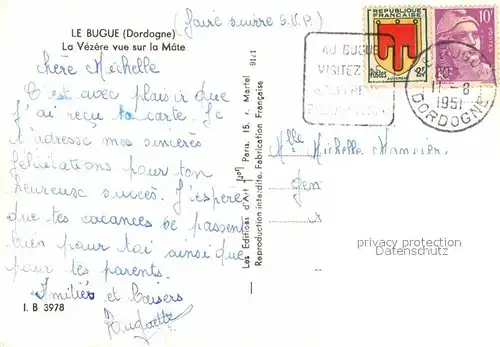 LE BUGUE (Dordogne)
La Vézère vue sur la Mâte
(faire suivre S.V.P.)
Chère Michelle
C'est avec plaisir que
j'ai reçu ta carte. Je
t'adresse mes sincères
félicitations pour ton
heureux succès. J'espère
que tes vacances se passent
bien pour toi ainsi que
pour tes parents.
Amitiés et baisers
Huguette
I. B 3978
1716
Les Editions d'Art Paris. 15, r. Martel
Reproduction interdite. Fabrication Française
AU BUGUE
VISITEZ
REPUBLIQUE
FRANÇAISE
POSTES
AUVERGNE
2F
10F
11-8
1951
DORDOGNE
Mlle Michelle
privacy protection
Datenschutz